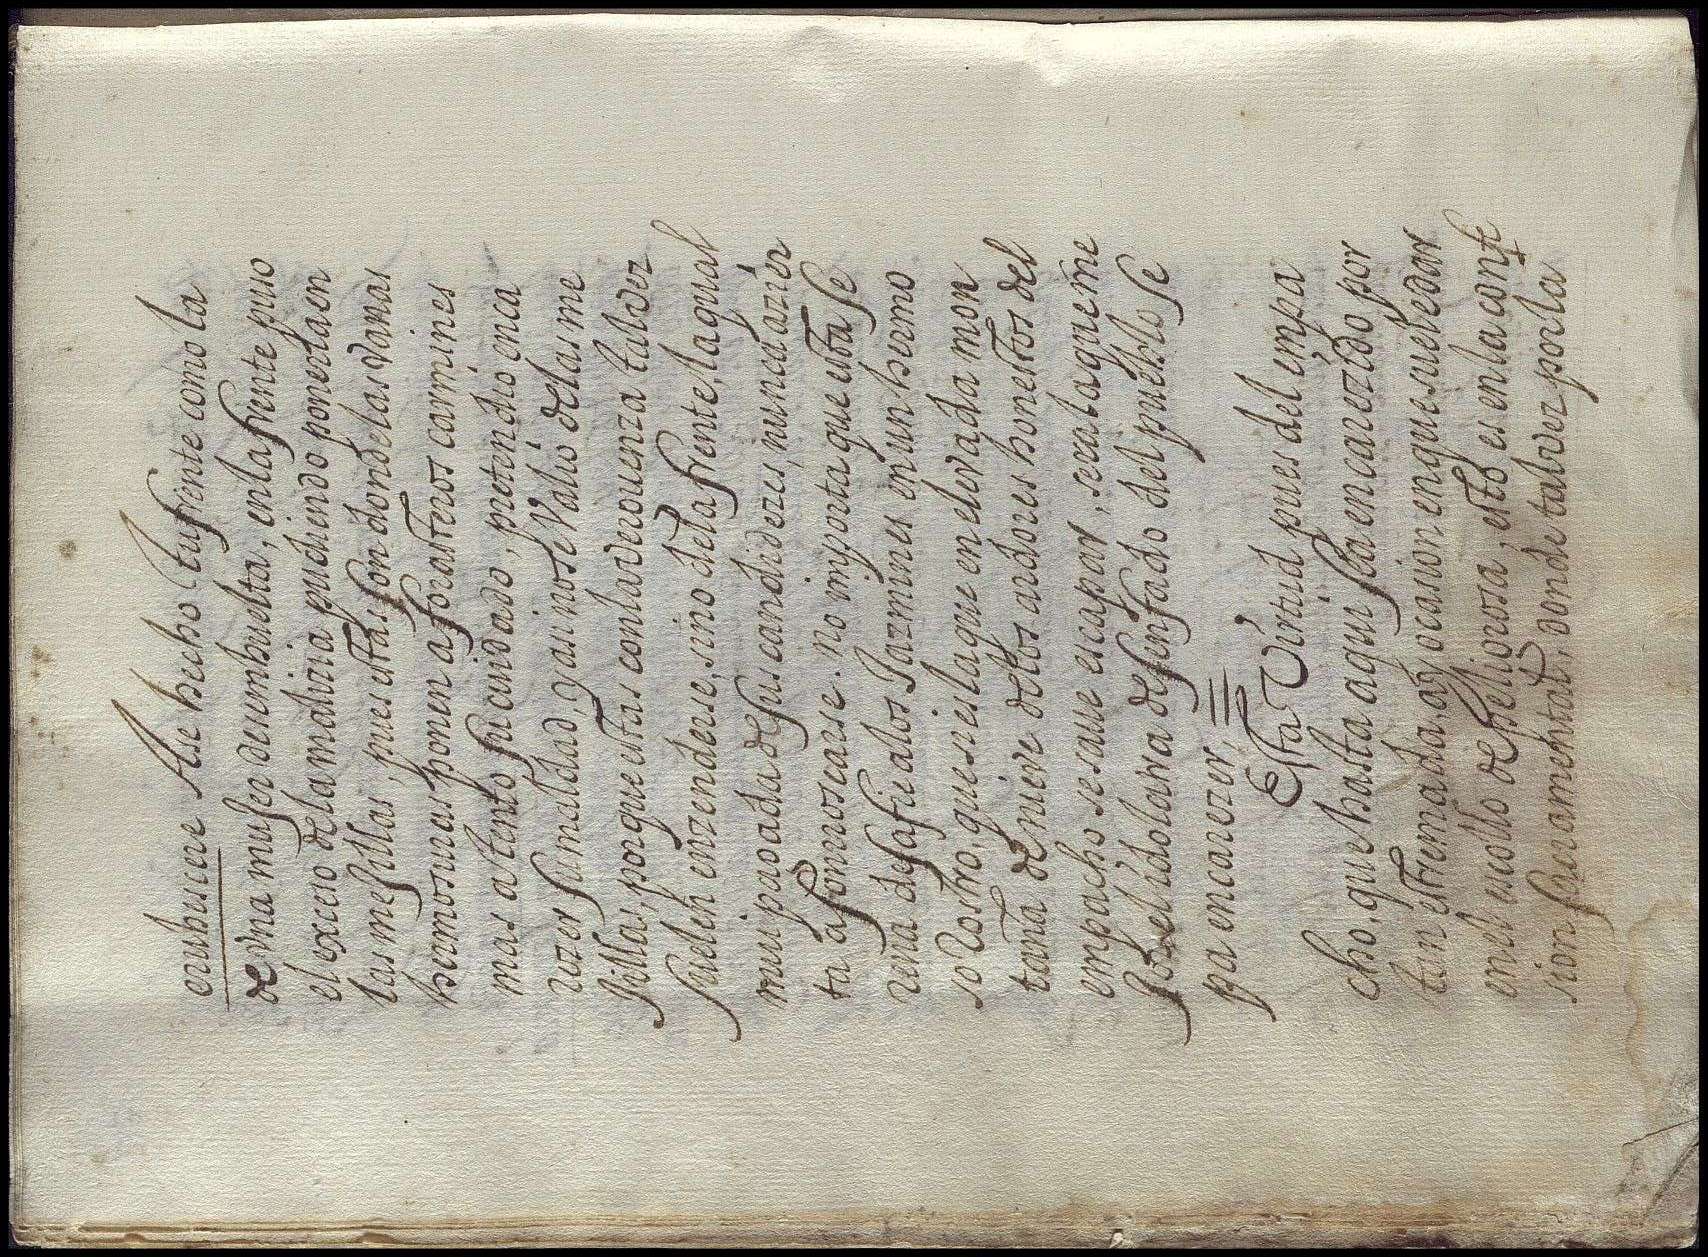 erubuscere Ase hecho (tu frente como la
de vna muger desembuelta, en la frente puso
el exceso de la maliziã pudiendo ponerla en
las mesillas, pues estas son donde las vanas
hermosuras ponen a forasteros carmines
mas atento su cuidado, pretendio enca
rezer su mesildad y asi no se valio de las me
sillas, porque estas con la verguenza tal vez
suelen enzenderse, sino de la frente, la qual
mui pagada de sus candidezes, nunca azier
ta a sonroscarse. no importa que esta se
rena desafie a los Jazmines en un hermo
so Rostro, que si es la que en eleuada mon
taña de nieue de los ardores honestos del
empacho se saue escapar, es a lo que me
jor el idolatra desenfado del pueblo se
pa encarezer, ==
Esta Virtud pues del empa
cho, que hasta aqui sea encarezido por
tan estremada, ay ocasion en que suele dar
en el escollo de peligrosa, esto es en la confe
sion sacramental, donde tal vez por la